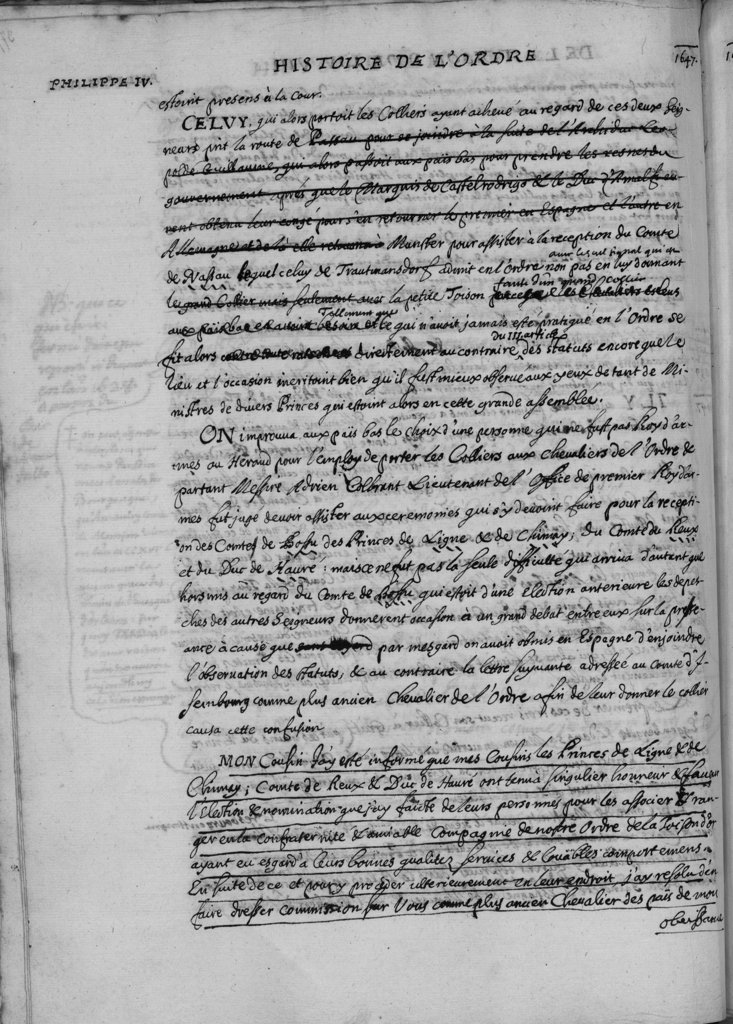 HISTOIRE DE L'ORDRE
1647.
PHILIPPE IV.
estoint presens à la Cour.
CELUY, qui alors portoit les Colliers ayant achevé au regard de ces deux Seig-
neurs prit la route de Passau pour se joindre à la suite de l'Archiducq Leo-
polde Guillaume, qui alors passoit aux païs bas pour prendre les resnes du
gouvernement après que le Marquis de Castelrodrigo & le Duc d'Amalfi eu-
rent obtenu leur congé pour s'en retourner le premier en Espagne et l'autre en
Allemagne et de là elle retourna à Munster pour assister à la reception du Comte
avec les
de Nassau lequel celuy de Trautmansdorf admit en l'Ordre non pas en luy donnant
faute d'un grand Collier
le grand Collier mais seulement avec la petite Toison
Tellement que
aux païs bas besoin et ce qui n'avoit jamais esté pratiqué en l'Ordre se
du III article
fit alors directement au contraire des statuts encore que le
lieu et l'occasion meritoint bien qu'il fust mieux observé aux yeux de tant de Mi-
nistres de divers Princes qui estoint alors en cette grande assemblée.
ON improuva aux païs bas le choix d'une personne qui ne fust pas Roy d'ar-
mes ou Heraud pour l'employ de porter les Colliers aux Chevaliers de l'Ordre &
partant Messire Adrien Colbrant Lieutenant de l'Office de premier Roy d'ar-
mes fut jugé devoir assister aux ceremonies qui s'y devoint faire pour la recepti-
on des Comtes de Bossu des Princes de Ligne & de Chimay, du Comte du Reux
et du Duc de Havré : mais ce ne fut pas la seule difficulté qui arriva d'autant que
hors mis au regard du Comte de Bossu qui estoit d'une election anterieure les depes-
ches des autres Seigneurs donnerent occasion à un grand debat entre eux sur la prese-
ance à cause que par mesgard on avoit obmis en Espagne d'enjoindre
l'observation des statuts, & au contraire la lettre suyvante adressée au Comte d'I-
sembourg comme plus ancien Chevalier de l'Ordre afin de leur donner le collier
causa cette confusion
MON Cousin J'ay esté informé que mes Cousins les Princes de Ligne & de
Chimay; Comte de Reux & Duc de Havré ont tenu à singulier honneur & faveur
l'Election & nomination que j'ay faicte de leurs personnes pour les associer & ran-
ger en la confraternité & amiable Compagnie de nostre Ordre de la Toison d'or
ayant eu esgard à leurs bonnes qualitez services & louables comportemens
En suite de ce et pour y proceder ulterieurement en leur endroit j'ay resolu d'en
faire dresser commission sur Vous comme plus ancien Chevalier des païs de mon
obeissance